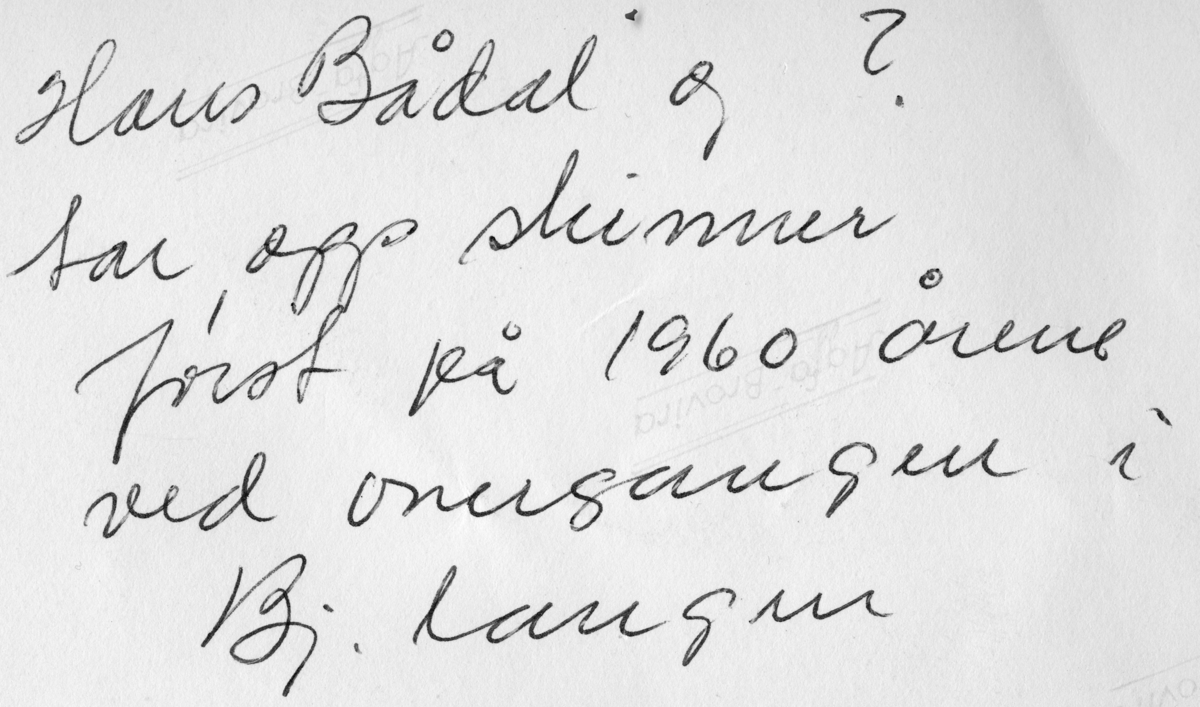 Hans Bådal og ?
tar opp skinner
først på 1960 årene
ved overgangen i
Bj. tangen
Agfa-Brovira
Agfa-Brovira